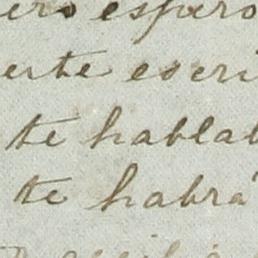 ero espero
erte escri
te hablab
te habrá